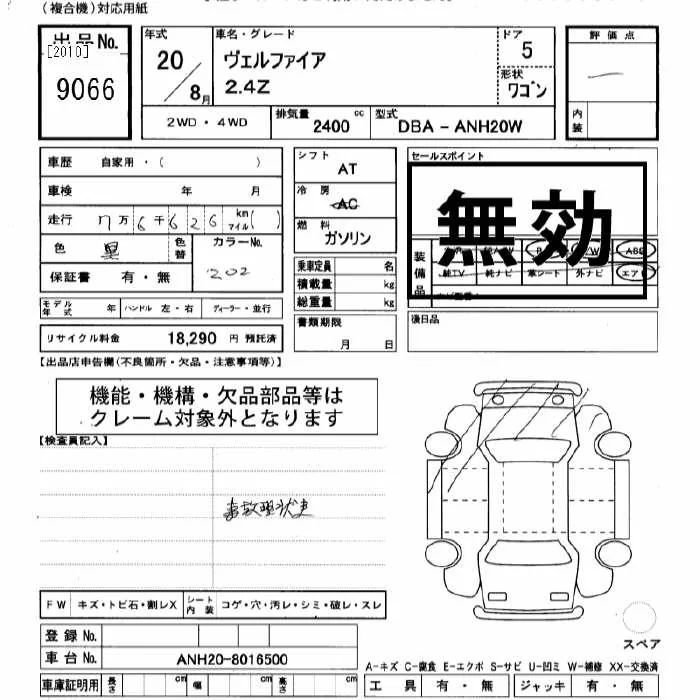 (複合機)対応用紙
出品No. [2010] 9066
年式 20/8月
車名・グレード ヴェルファイア 2.4Z
ドア 5
形状 ワゴン
評価点 ―
内装
2WD・4WD
排気量 2400 cc
型式 DBA - ANH20W
車歴 自家用・( )
車検 年 月
走行 7万6千626 km マイル( )
色 黒
色替
カラーNo. 202
保証書 有・無
モデル年式 年 ハンドル 左・右 ディーラー・並行
リサイクル料金 18,290 円 預託済
シフト AT
冷房 AC
燃料 ガソリン
乗車定員 名
積載量 kg
総重量 kg
書類期限 月 日
セールスポイント
無効
装備品
純TV 純ナビ 革シート 外ナビ エアB
後日品
【出品店申告欄(不良箇所・欠品・注意事項等)】
機能・機構・欠品部品等は
クレーム対象外となります
【検査員記入】
事故現状車
FW キズ・トビ石・割レX シート内装 コゲ・穴・汚レ・シミ・破レ・スレ
登録No.
車台No. ANH20-8016500
車庫証明用 長さ cm 幅 cm 高さ cm
スペア
A-キズ C-腐食 E-エクボ S-サビ U-凹ミ W-補修 XX-交換済
工具 有・無 ジャッキ 有・無